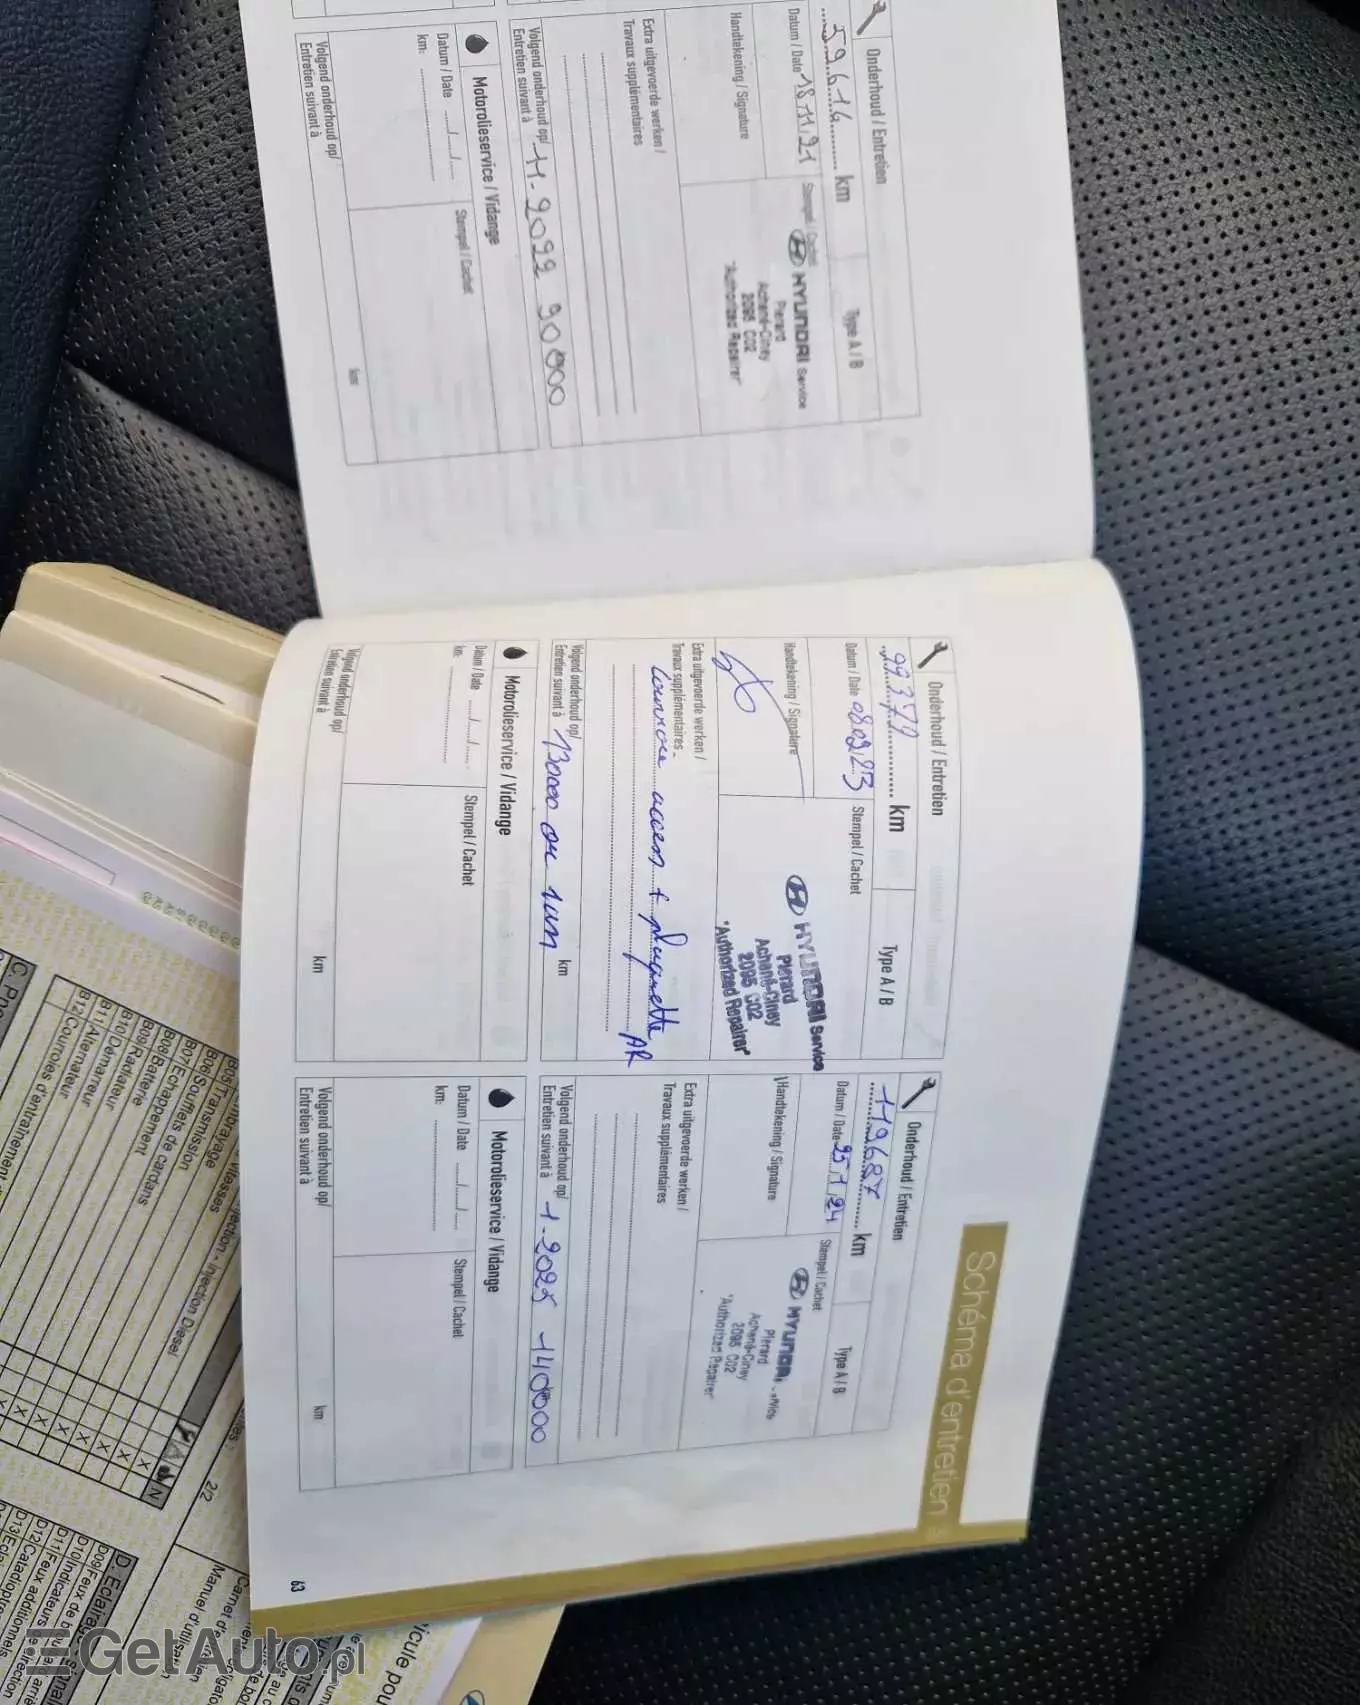 Onderhoud / Entretien
59.614 km
Type A / B
Datum / Date 18.11.21
Stempel / Cachet
HYUNDAI Service
Pierard
Achêne-Ciney
2095 C02
"Authorized Repairer"
Handtekening / Signature
Extra uitgevoerde werken /
Travaux supplémentaires
Volgend onderhoud op/
Entretien suivant à 11-2022 90000
Motorolieservice / Vidange
Datum / Date ..../..../....
Stempel / Cachet
km:
Volgend onderhoud op/
Entretien suivant à
km
Schéma d'entretien
Onderhoud / Entretien
99379 km
Type A / B
Datum / Date 08.02.23
Stempel / Cachet
HYUNDAI Service
Pierard
Achêne-Ciney
2095 C02
"Authorized Repairer"
Handtekening / Signature
Extra uitgevoerde werken /
Travaux supplémentaires
courroie access + plaquette AR
Volgend onderhoud op/
Entretien suivant à 130000 ou 1an km
Motorolieservice / Vidange
Datum / Date ..../..../....
Stempel / Cachet
km:
Volgend onderhoud op/
Entretien suivant à
km
Onderhoud / Entretien
119687 km
Type A / B
Datum / Date 25.1.24
Stempel / Cachet
HYUNDAI
Pierard
Achêne-Ciney
2095 C02
"Authorized Repairer"
Handtekening / Signature
Extra uitgevoerde werken /
Travaux supplémentaires
Volgend onderhoud op/
Entretien suivant à 1-2025 140000
Motorolieservice / Vidange
Datum / Date ..../..../....
Stempel / Cachet
km:
Volgend onderhoud op/
Entretien suivant à
km
63
B06 Transmission
B07 Soufflets de cardans
B08 Echappement
B09 Batterie
B10 Radiateur
B11 Démarreur
B12 Alternateur
Courroies d'entraînement
injection Diesel
2/2
D. Eclairage
Manuel d'utilisation
GetAuto.pl